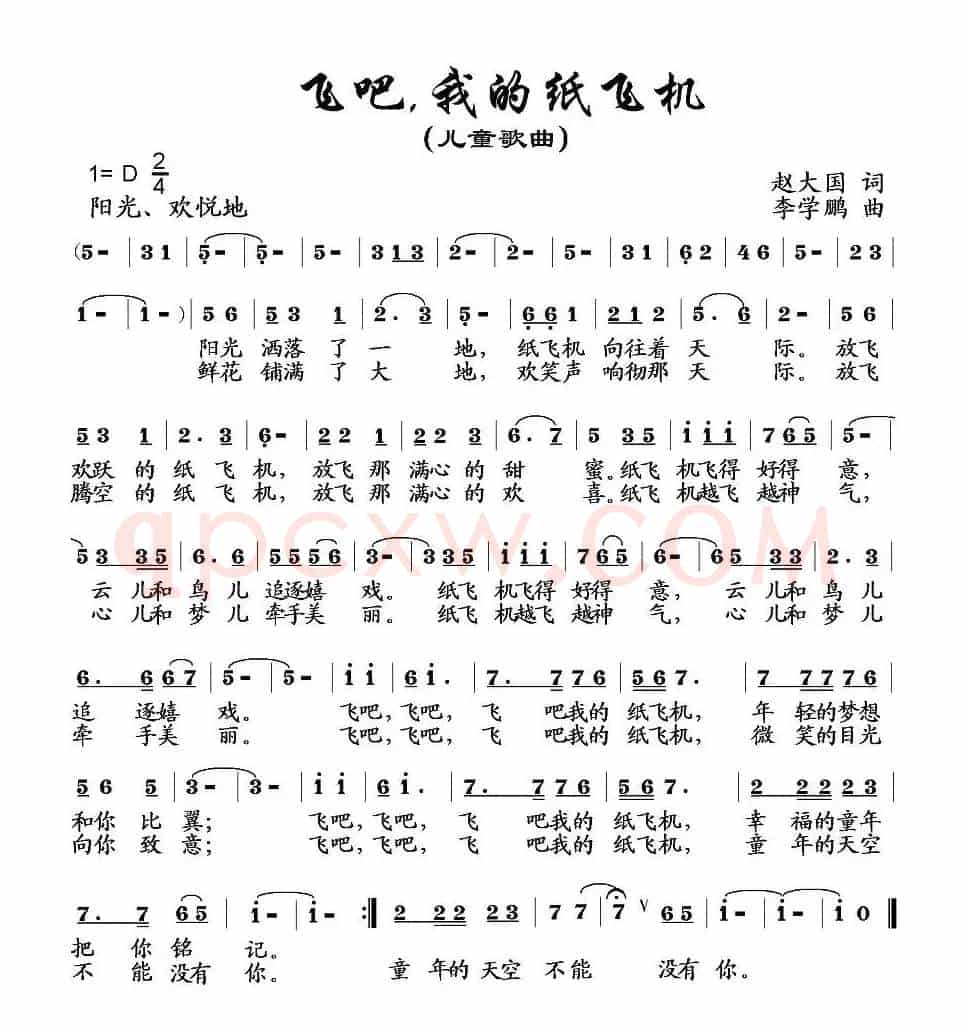 飞吧,我的纸飞机
(儿童歌曲)
1= D 2/4
赵大国 词
阳光、欢悦地
李学鹏 曲
(5- | 31 | 5- | 5- | 5- | 313 | 2- | 2- | 5- | 31 | 62 | 46 | 5- | 23
| i- | i- ) | 56 | 53 1 | 2. 3 | 5- | 661 | 212 | 5. 6 | 2- | 56
阳光 洒落 了 一 地, 纸飞机 向往着 天 际。 放飞
鲜花 铺满 了 大 地, 欢笑声 响彻那 天 际。 放飞
53 1 | 2. 3 | 6- | 22 1 | 22 2 | 6. 7 | 5 35 | i i i | 765 | 5-
欢跃 的 纸 飞 机, 放飞 那 满心 的 甜 蜜。纸飞 机飞得 好得 意,
腾空 的 纸 飞 机, 放飞 那 满心 的 欢 喜。纸飞 机越飞 越神 气,
53 35 | 6. 6 | 5556 | 3- | 335 | i i i | 765 | 6- | 65 33 | 2. 3
云 儿和 鸟 儿 追逐嬉 戏。 纸飞 机飞得 好得 意, 云 儿和 鸟儿
心 儿和 梦 儿 牵手美 丽。 纸飞 机越飞 越神 气, 心 儿和 梦儿
6. 667 | 5- | 5- | i i | 6i. | 7. 776 | 567. | 7 7776
追 逐嬉 戏。 飞吧,飞吧, 飞 吧我的 纸飞机, 年 轻的梦想
牵 手美 丽。 飞吧,飞吧, 飞 吧我的 纸飞机, 微 笑的目光
56 5 | 3- | 3- | i i | 6i. | 7. 776 | 567. | 2 2223
和你 比 翼; 飞吧,飞吧, 飞 吧我的 纸飞机, 幸 福的童年
向你 致 意; 飞吧,飞吧, 飞 吧我的 纸飞机, 童 年的天空
7. 7 65 | i- | i- :‖ 2 22 23 | 77 | 7 ∨ 65 | i- | i- | i0 ‖
把 你 铭 记。
不 能 没有 你。 童 年的 天空 不能 没有 你。
qpcxw.COM